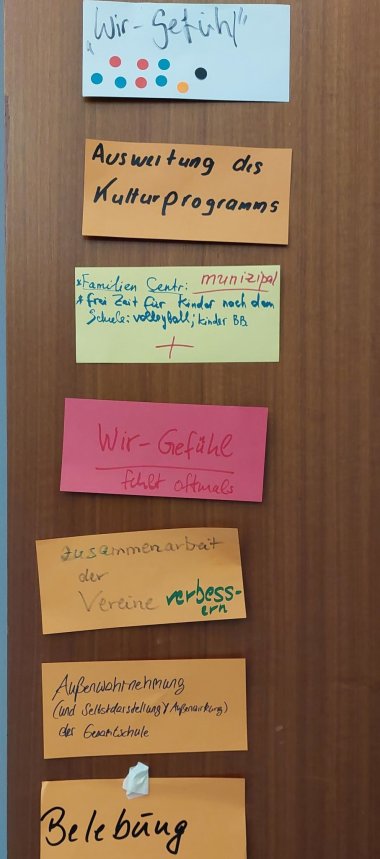 "Wir-Gefühl"
Ausweitung des
Kulturprogramms
* Familien Centr: munizipal
* frei Zeit für Kinder nach dem
Schule: volleyball, kinder BB
+
Wir-Gefühl
fehlt oftmals
zusammenarbeit
der
Vereine verbess-
ern
Außenwahrnehmung
(und Selbstdarstellung / Außenwirkung)
der Gesamtschule
Belebung